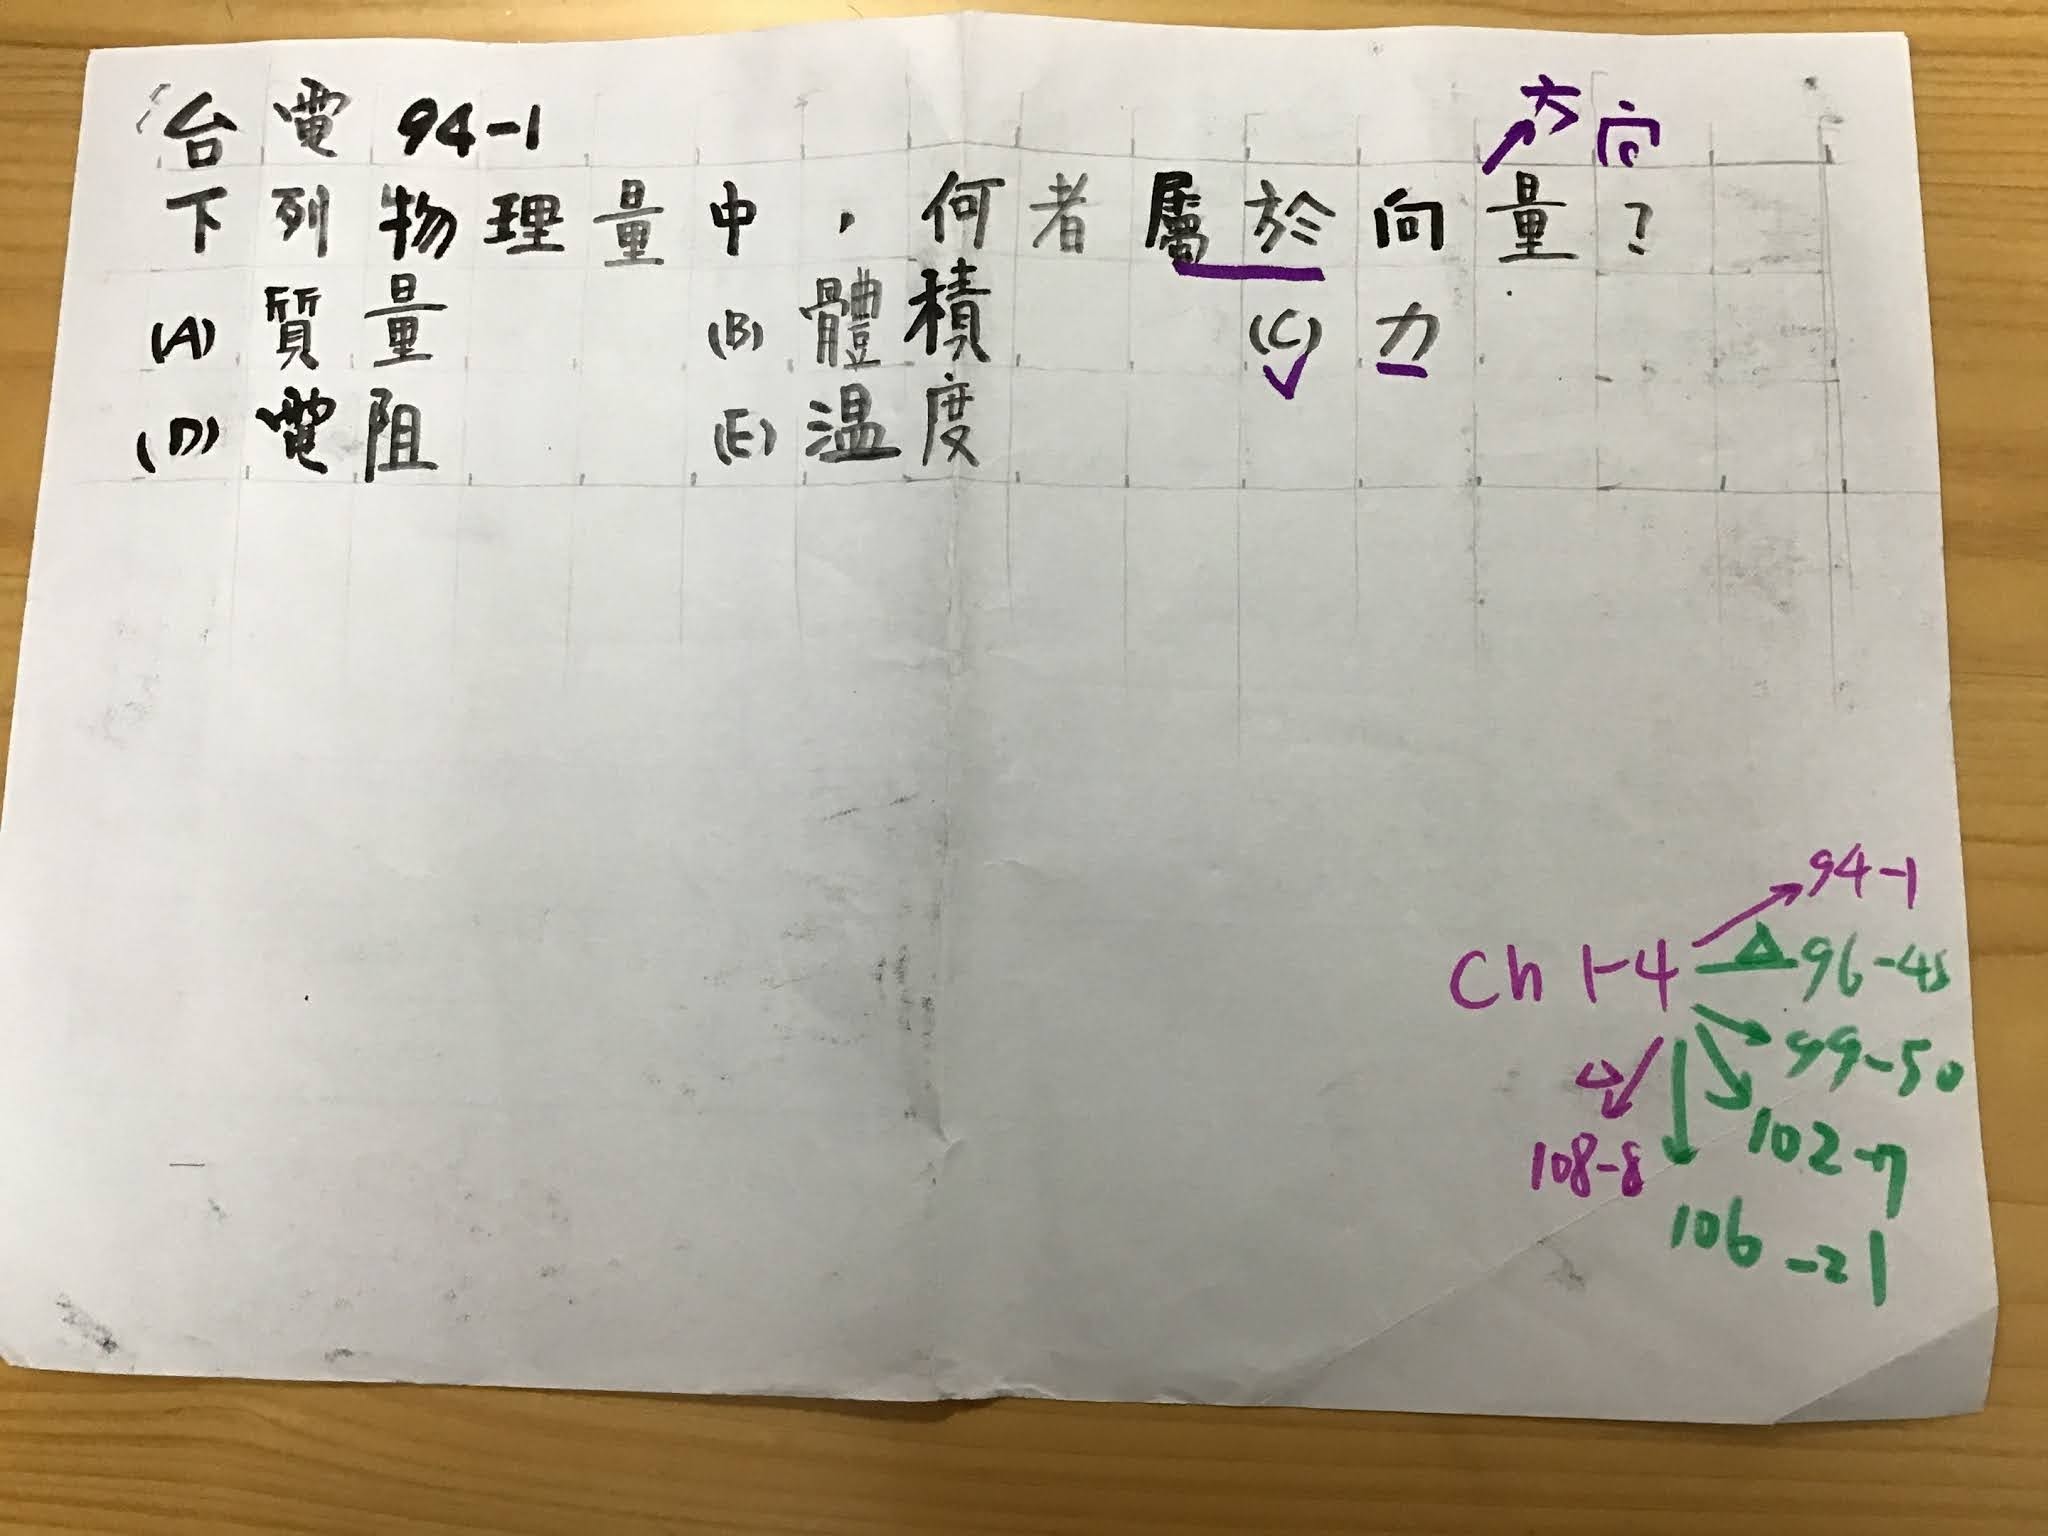 台電 94-1
大向
下列物理量中，何者屬於向量？
(A) 質量 (B) 體積 (C) 力
(D) 電阻 (E) 溫度
94-1
Ch 1-4 96-45
99-50
108-8 102-7
106-21